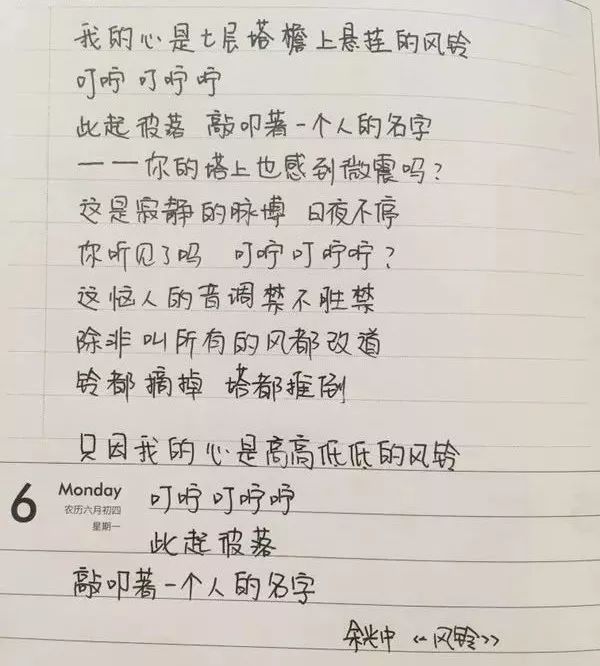 我的心是七层塔檐上悬挂的风铃
叮咛叮咛咛
此起彼落 敲叩著一个人的名字
——你的塔上也感到微震吗?
这是寂静的脉搏 日夜不停
你听见了吗 叮咛叮咛咛?
这恼人的音调禁不胜禁
除非叫所有的风都改道
铃都摘掉 塔都推倒
只因我的心是高高低低的风铃
6 Monday 叮咛叮咛咛
农历六月初四
星期一
此起彼落
敲叩著一个人的名字
余光中《风铃》